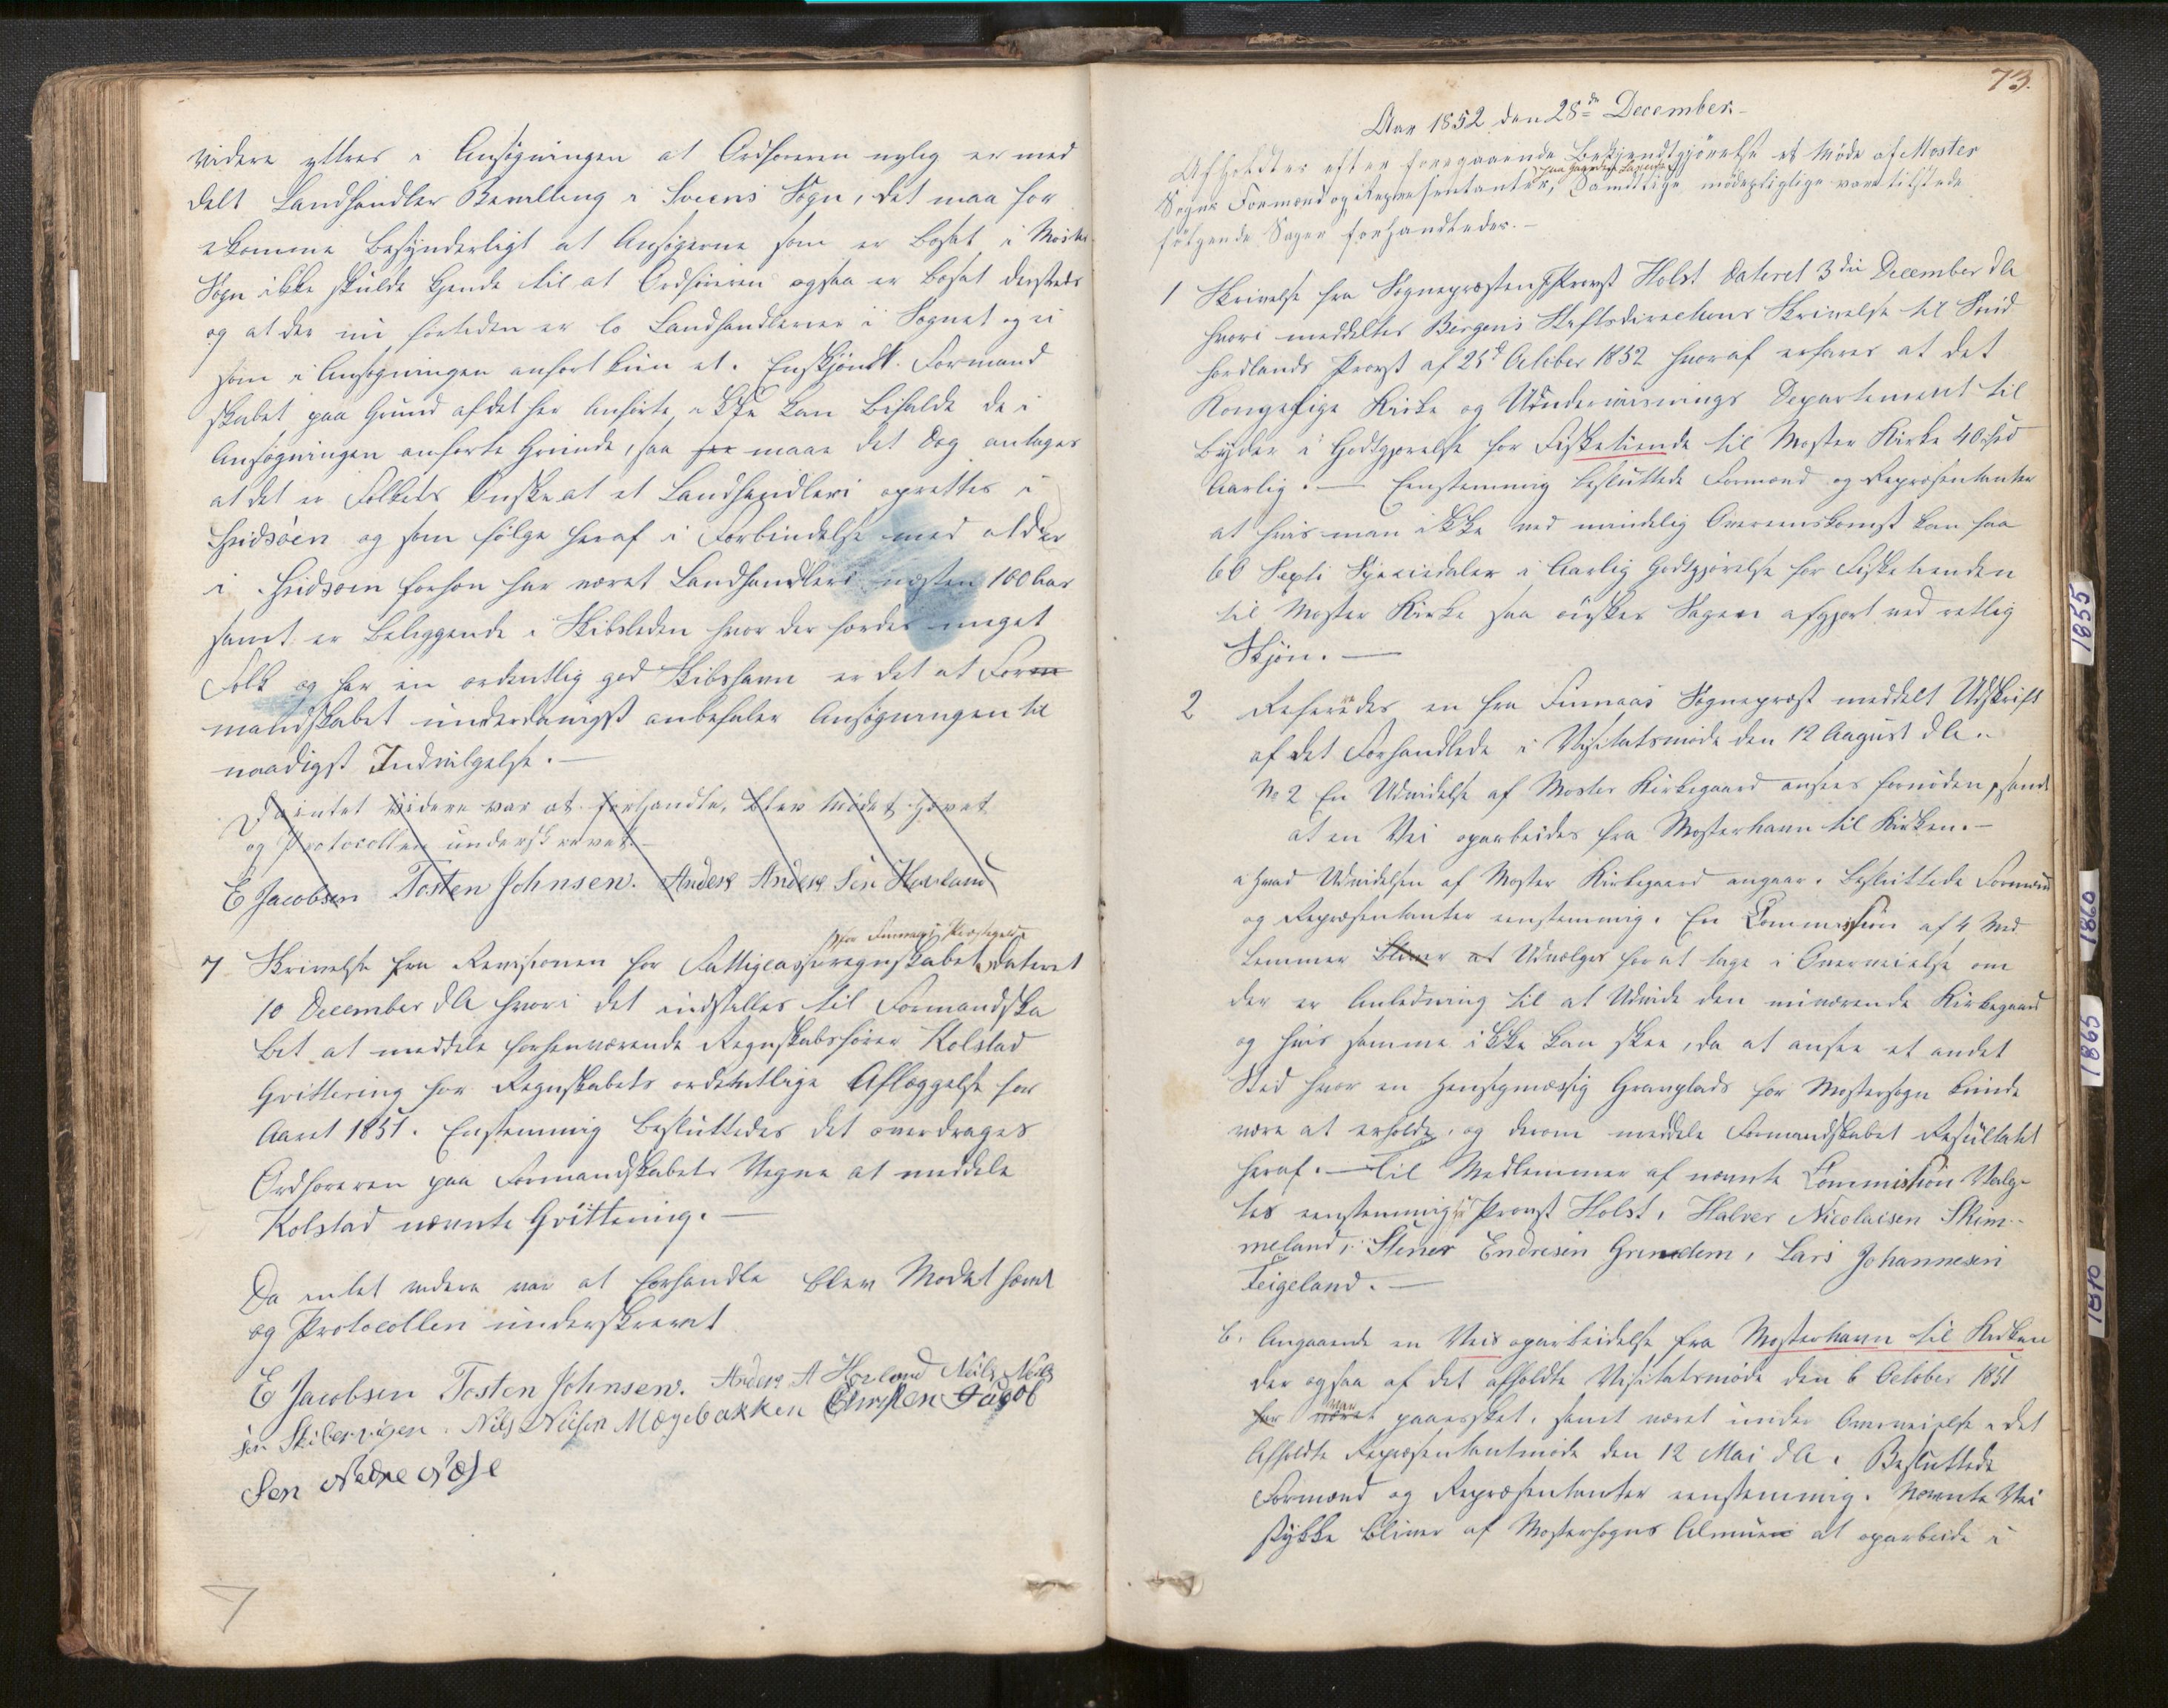 videre yttres i Ansøgningen at Ordføreren nylig er med
delt Landhandler Bevilling i Sveens Sogn, det maa for
ekomme besynderligt at Ansøgerne som er bosat i Moster
Sogn ikke skulde kjende til at Ordføreren ogsaa er bosat dersteds
og at der nu fortiden er to Landhandlerier i Sognet og ei
som i Ansøgningen anført kun et. Enskjøndt Formand
skabet paa Grund af det her Anførte ikke kan bifalde de i
Ansøgningen anførte Grunde, saa maae det dog antages
at det er Folkets Ønske at et Landhandleri oprettes i
Hiidsöen og som følge heraf i Forbindelse med at der
i Hiidsöen forhen har været Landhandleri næsten 100 Aar
samt er beliggende i Skibsleden hvor der færdes meget
Folk og har en ordentlig god Skibshavn er det at For
mandskabet underdanigst anbefaler Ansøgningen til
naadigst Indvilgelse. —
Da intet videre var at forhandle, blev Mødet hævet
og Protocollen underskrevet —
E Jacobsen Tosten Johnsen. Anders Anders Sen Hovland
for Finnaas Præstegield
7 Skrivelse fra Revisionen for Fattigcasseregnskabet dateret
10 December d.A. hvori det indstilles til Formandska
bet at meddele forhenværende Regnskabsfører Kolstad
Qvittering for Regnskabets ordentlige Aflæggelse for
Aaret 1851. Enstemmig besluttedes det overdrages
Ordføreren paa Formandskabets Vegne at meddele
Kolstad nævnte Qvittering. —
Da intet videre var at forhandle blev Mødet hævet
og Protocollen underskrevet
E Jacobsen Tosten Johnsen. Anders A Hovland Nils Niels
sen Skibervigen. Nils Nielsen Mögebakken Christen Jacob
Sen Nedre Nese
7
73.
Aar 1852 den 28de December.
Afholdtes efter foregaaende Bekjendtgjørelse et Møde af Moster
paa Gaarden
Sogns Formænd og Repræsentanter, Samtlige mødepligtige vare tilstede
følgende Sager forhandledes. —
1 Skrivelse fra Sognepræsten Provst Holst dateret 3die December d.A.
hvori meddeltes Bergens Stiftsdirections Skrivelse til Sund
hordlands Provst af 25de October 1852 hvoraf erfares at det
Kongelige Kirke og Undervisnings Departement til
byder i Godtgjørelse for Fisketiende til Moster Kirke 40 Spd
Aarlig. — Eenstemmig besluttede Formænd og Repræsentanter
at hvis man ikke ved mindelig Overeenskomst kan faa
60 Sexti Speciedaler i Aarlig Godtgjørelse for Fisketienden
til Moster Kirke saa ønskes Sagen afgjort ved retlig
Skjøn. —
2 Refereredes en fra Finnaas Sognepræst meddelt Udskrift
af det Forhandlede i Visitatsmøde den 12 August d.A.
No 2 En Udvidelse af Moster Kirkegaard ansees fornøden, samt
at en Vei oparbeides fra Mosterhavn til Kirken. —
a Hvad Udvidelsen af Moster Kirkegaard angaar. Besluttede Formænd
og Repræsentanter eenstemmig. En Commission af 4 Med
lemmer bliver at Udvælges for at tage i Overveielse om
der er Anledning til at Udvide den nuværende Kirkegaard
og hvis samme ikke kan skee, da at ansee et andet
Sted hvor en hensigtmæssig Gravplads for Mostersogn kunde
være at erholde, og derom meddele Formandskabet Resultatet
heraf. — Til Medlemmer af nævnte Commission Valg-
tes eenstemmig: Provst Holst, Halver Nicolaisen Skim-
meland, Stener Endresen Grindem, Lars Johannesen
Teigeland. —
b. Angaaende en Veis oparbeidelse fra Mosterhavn til Kirken
der ogsaa af det afholdte Visitatsmøde den 6 October 1851
har været paaæsket, samt været under Overveielse i det
Afholdte Repræsentantmøde den 12 Mai d.A. Besluttede
Formænd og Repræsentanter eenstemmig. Nævnte Vei
stykke bliver af Mostersogns Almue at oparbeide i
1855
1860
1865
1870